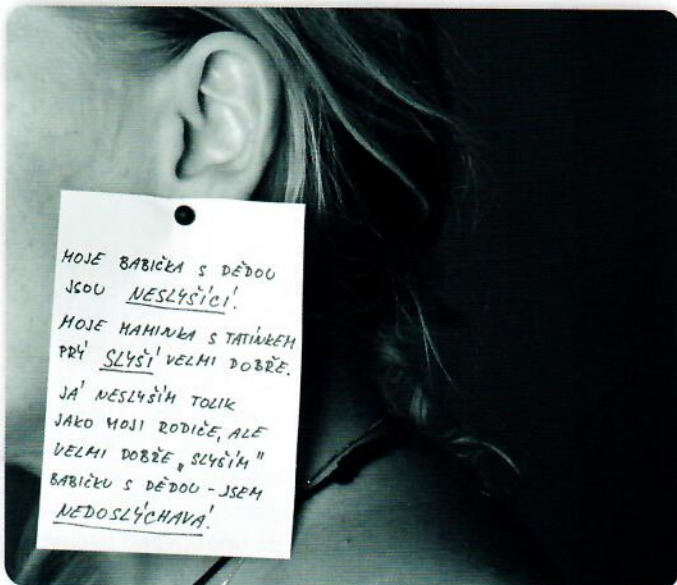 MOJE BABIČKA S DĚDOU
JSOU NESLYŠÍCÍ.
MOJE MAMINKA S TATÍNKEM
PRÝ SLYŠÍ VELMI DOBŘE.
JÁ NESLYŠÍM TOLIK
JAKO MOJI RODIČE, ALE
VELMI DOBŘE „SLYŠÍM"
BABIČKU S DĚDOU - JSEM
NEDOSLÝCHAVÁ!